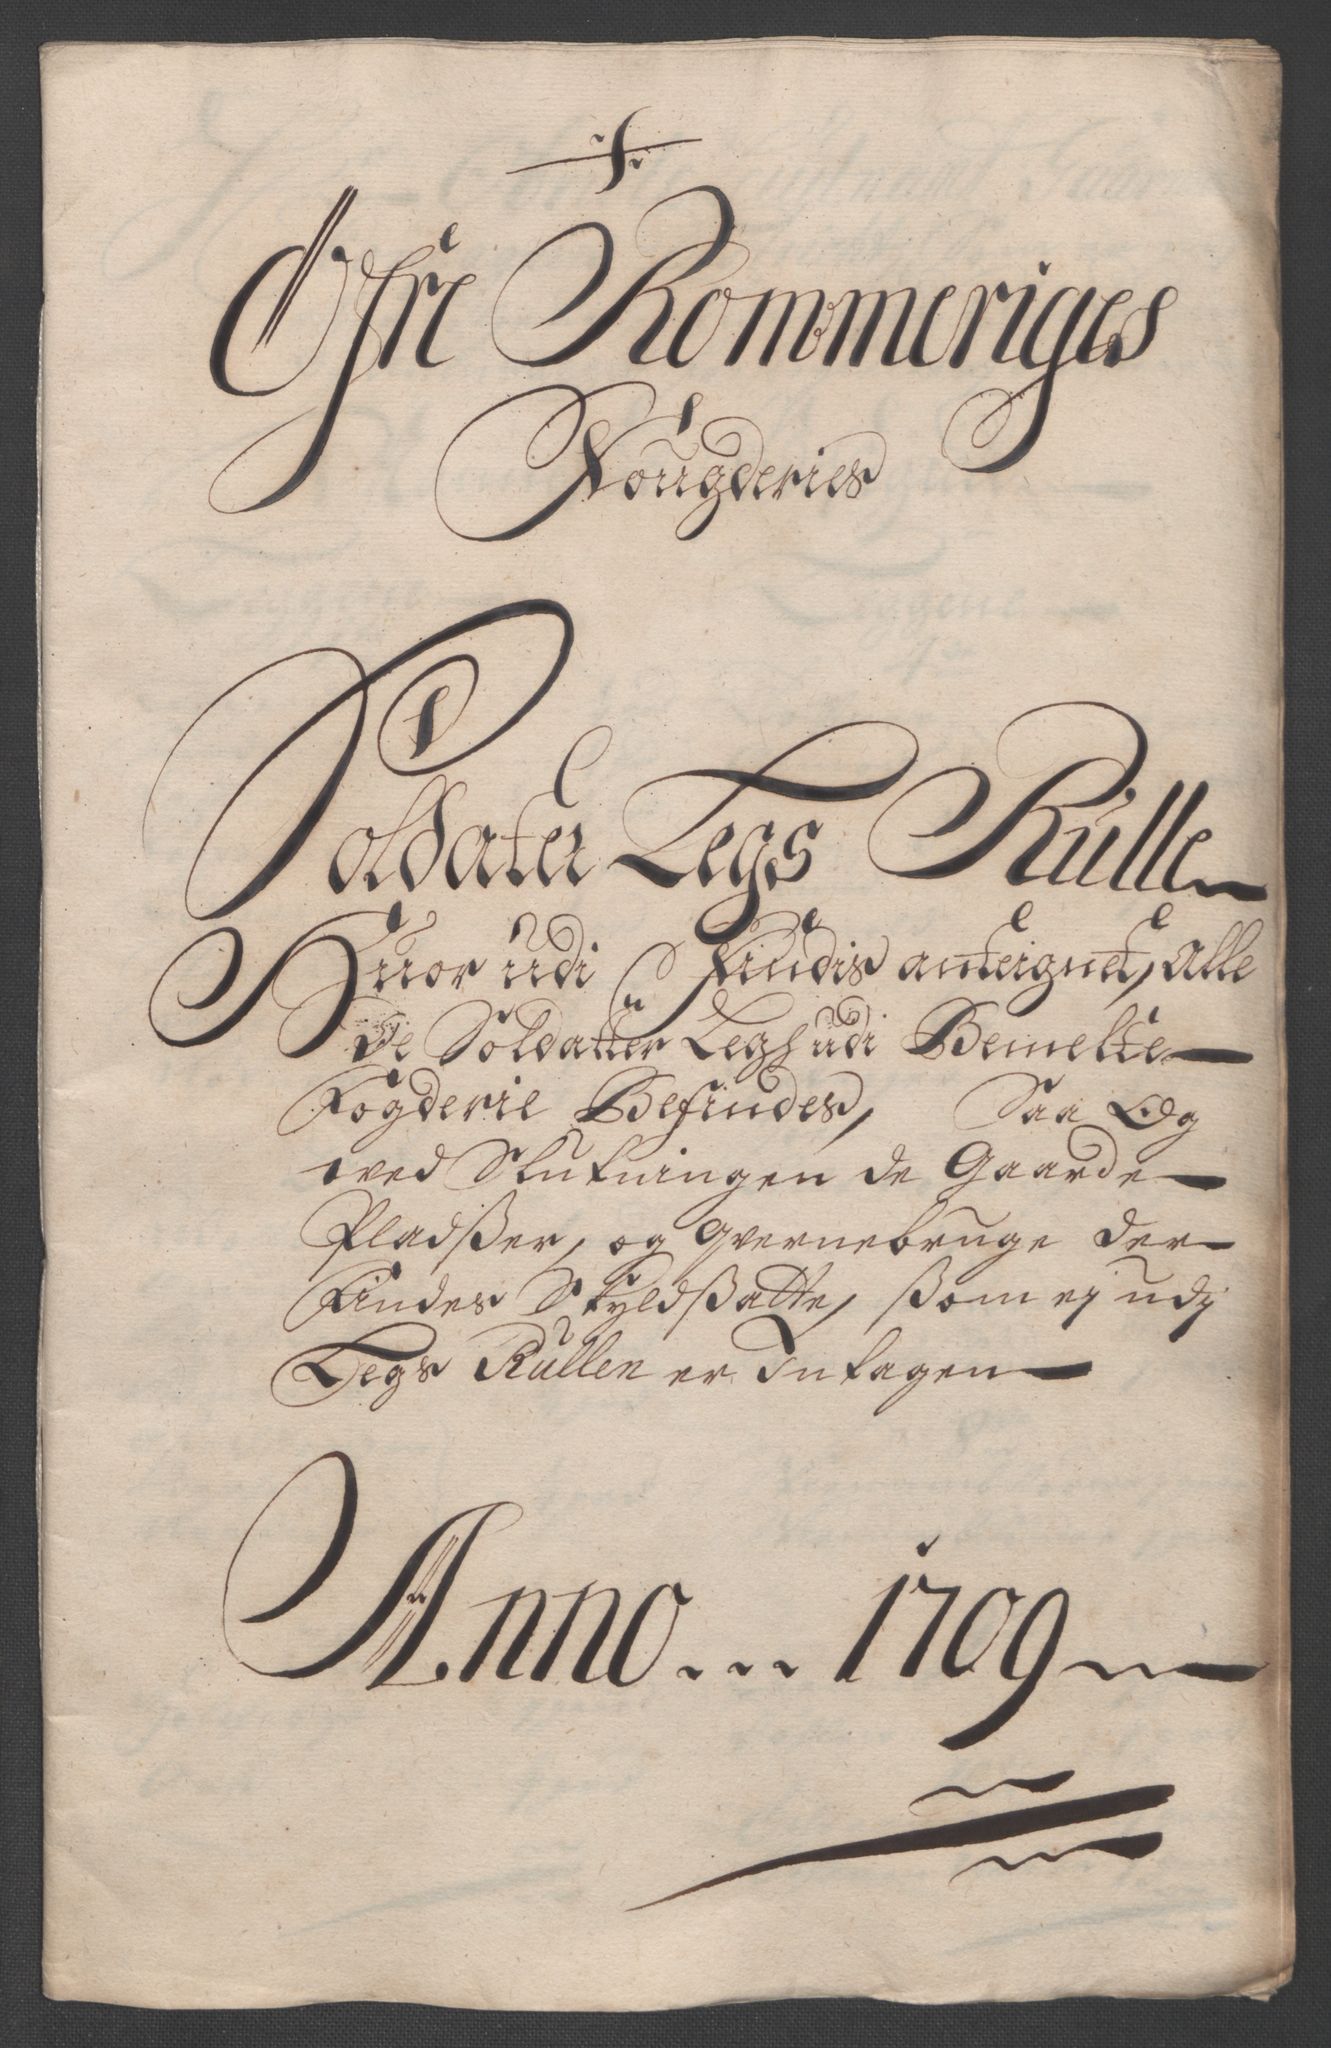 Øfre Rommeriges
Fougderies
Soldater Legs Rulle
Huor udi Findis anteignet, Alle
de Soldatter Legh udi Bemelte
Fogderie Befindes, Saa Og
ved Slutningen de Gaarde
Pladßer, og Qvernebruge der
Findes Skyldßatte, ßom ej udj
Legs Rullen er Intagen
Anno 1709